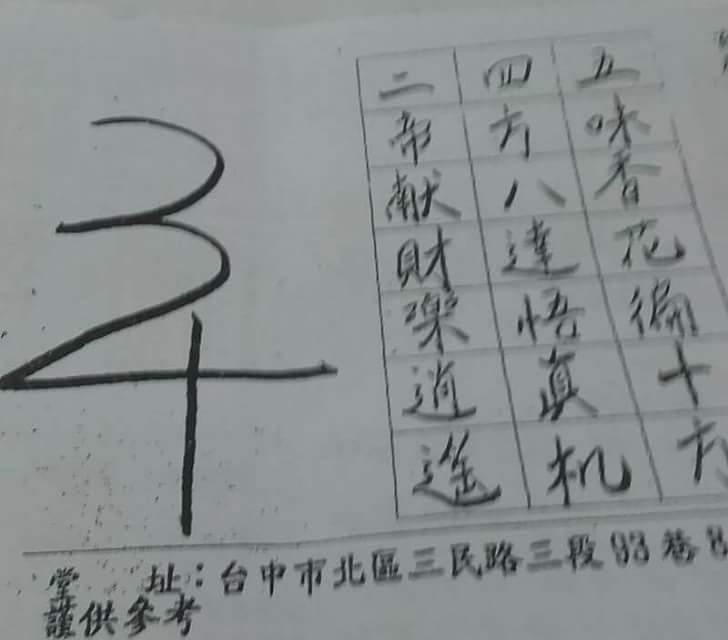 五味香花徧十方
四方八達悟真机
二帝献財樂逍遙
34
堂 址：台中市北區三民路三段93巷
謹供參考